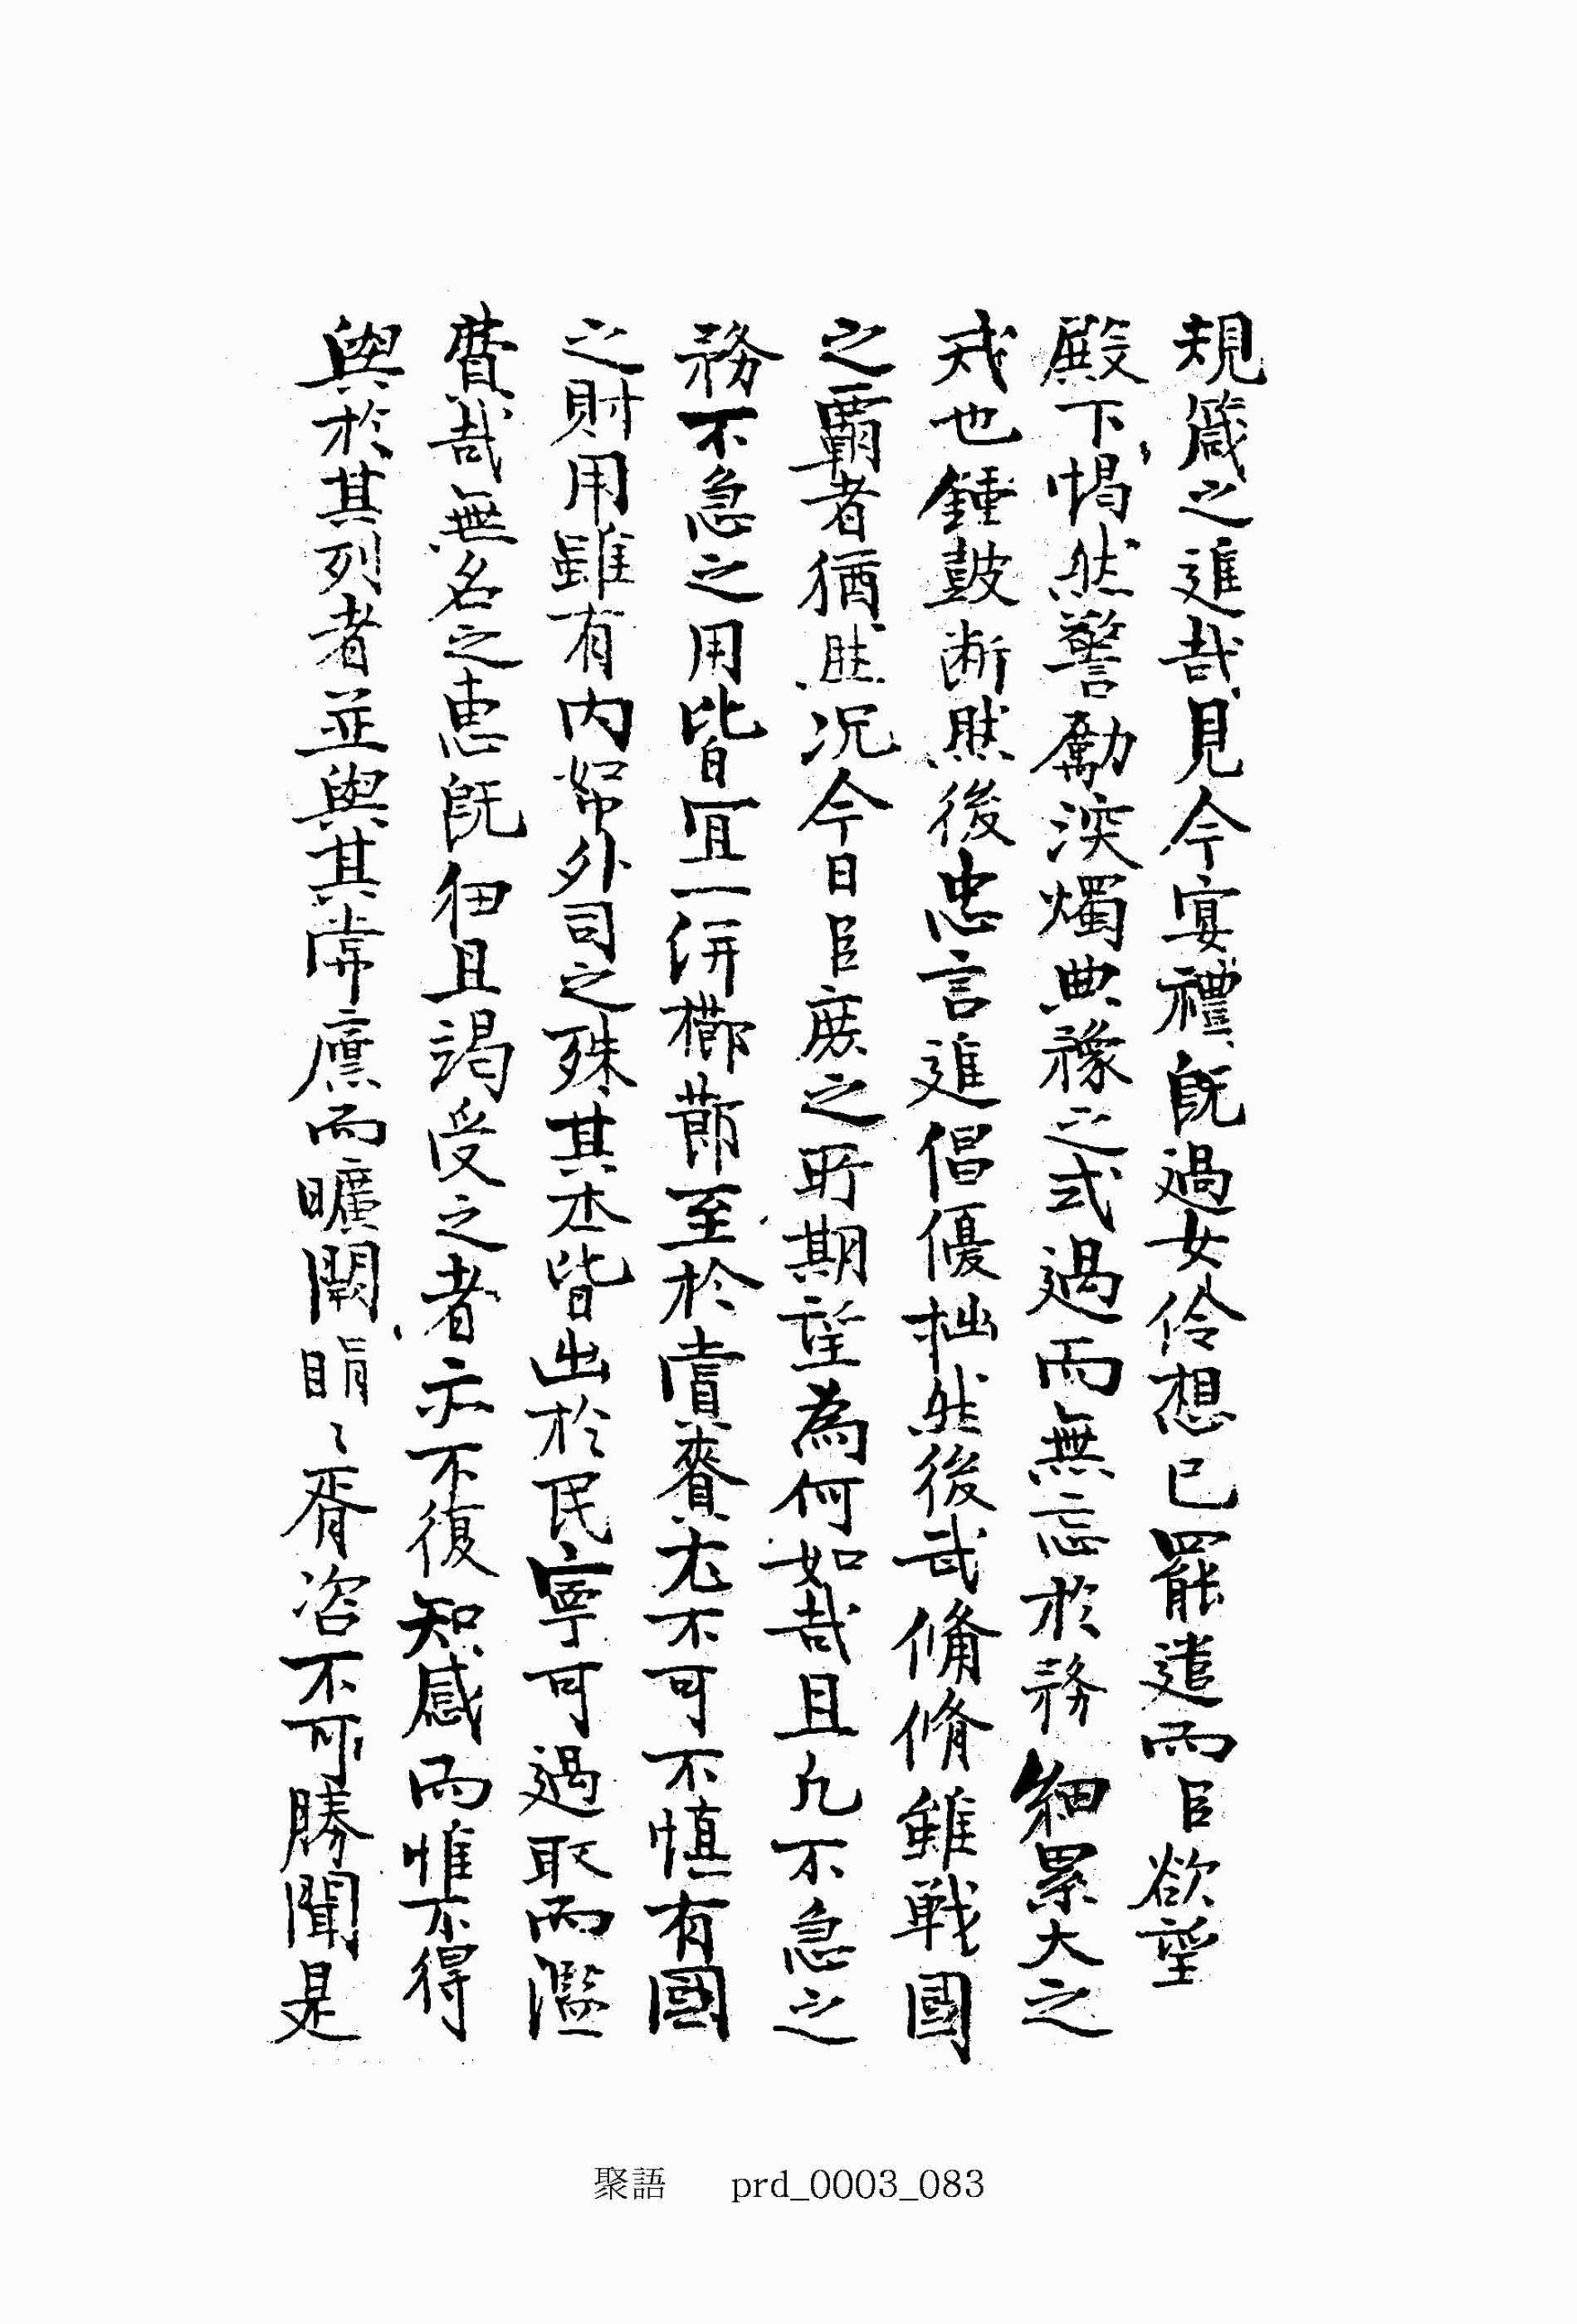 規箴之進哉見今宴禮旣過女伶想已罷遣而臣欲望
殿下惕然警勵深燭典豫之戒過而無忘於務細累大之
戒也鍾鼓斷然後忠言進倡優拙然後武備脩雖戰國
之霸者猶然況今日臣庶之所期望爲何如哉且凡不急之
務不急之用皆宜一倂櫛節至於賞賚尤不可不愼有國
之財用雖有內帑外司之殊其本皆出於民寧可過取而濫
費哉無名之惠旣狃且謁受之者亦不復知感而惟不得
與於其列者並與其常廩而曠闕睊〻胥咨不可勝聞是
聚語 prd_0003_083